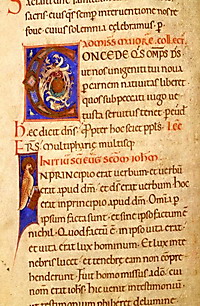 sacris eiusq̄ semp interuentione nos re
foue cuius solemnia celebramus. p
Ad missā maiorē. collect.
CONCEDE QS OMPS DS
ut nos unigeniti tui noua
p carnem natiuitas liberet
quos sub peccati iugo ue
tusta seruitus tenet. p eund
Hec dicit dn̄s. Propter hoc sciet ppls. Lec
ERS. Multipharie multisq
Initiū sci euḡ scd̄m iohm
IN PRINCIPIO erat uerbum et uerbū
erat apud dm̄. et ds̄ erat uerbum. hoc
erat in principio apud dm̄. Omīa p
ipsum facta sunt. et sine ipso factum ē
nichil. Quod factū ē in ipso uita erat.
et uita erat lux hominum. Et lux in te
nebris lucet. et tenebre eam non conpre
henderunt. Fuit homo missus a dō. cui
nomen erat iohs̄. hic uenit in testimoniū
ut testimonium phiberet de lumine